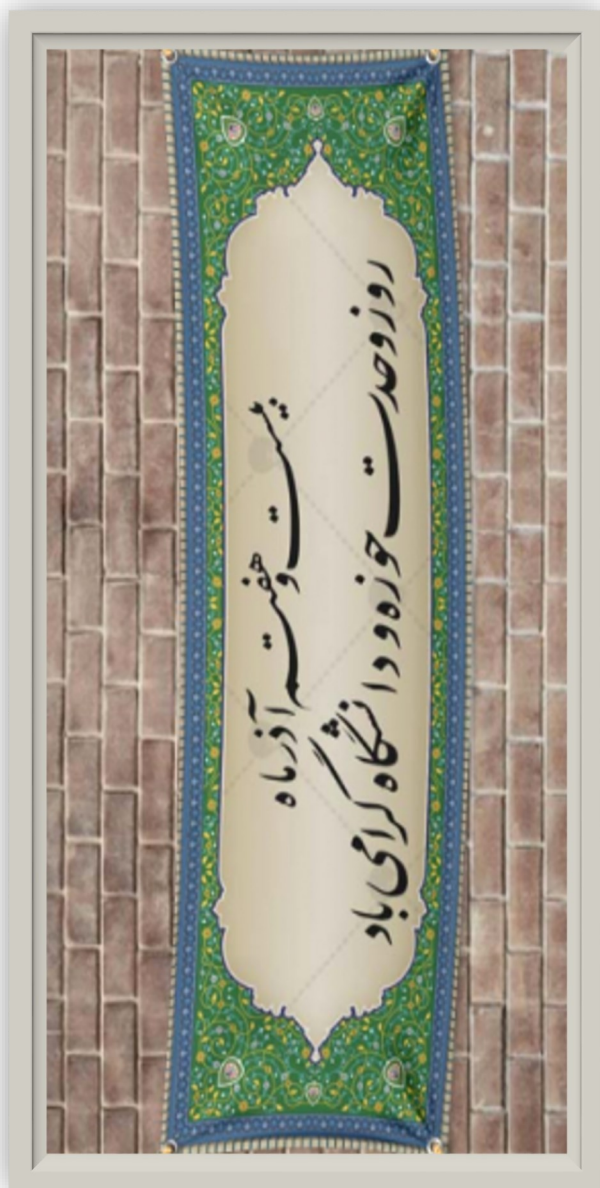 بیست و هفتم آذر ماه
روز وحدت حوزه و دانشگاه گرامی باد